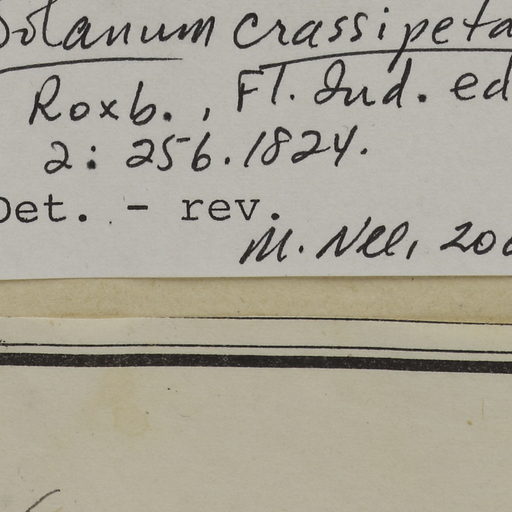 Solanum crassipeta
Roxb., Fl. Ind. ed
2: 256. 1824.
Det. - rev.
M. Nee, 200